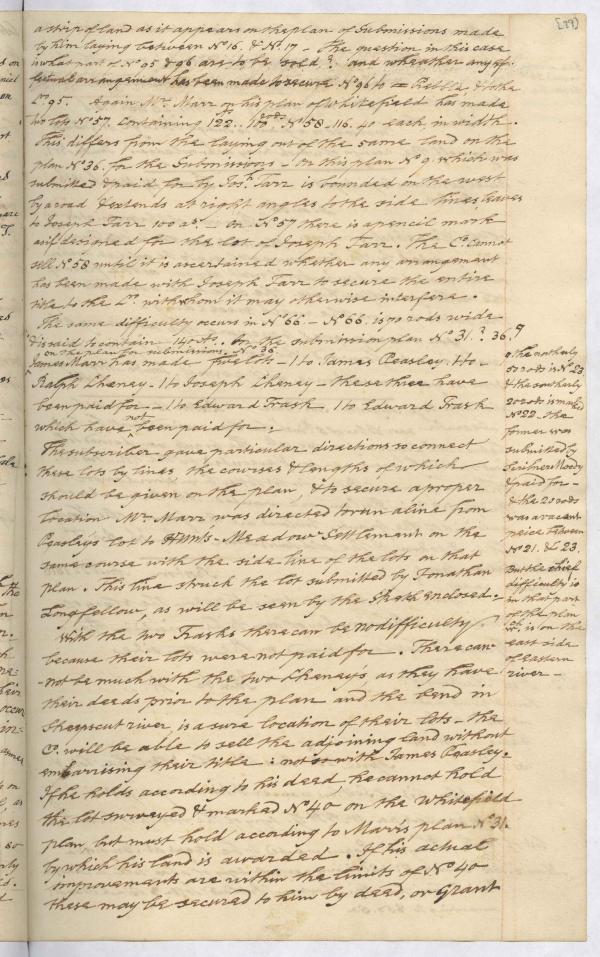 [29]
a strip of land as it appears on the plan of Submissions made
by him laying between No 16. & No. 17 - The question in this case
is what part of No 95 & 96 are to be sold? and wheather any ef-
fectual arrangement has been made to secure No 96 to & to the
Co. 95. Again Mr. Marr on his plan of Whitefield has made
his lots No 57. containing 122.. No 58 - 116. 40 each in width.
This differs from the laying out of the same land on the
plan No 36. for the Submissions - On this plan No 9 which was
submitted & paid for by Josh. Tarr is bounded on the west
by a road & extends at right angles to the side lines leaves
to Joseph Tarr 100 as. - On No 57 there is a pencil mark
as if designed for the lot of Joseph Tarr. The Co. cannot
sell No 58 until it is ascertained whether any arrangement
has been made with Joseph Tarr to secure the entire
title to the Co. with whom it may otherwise interfere.
The same difficulty occurs in No 66. - No 66. is 70 rods wide
& is said to contain 140 As. On the submission plan No 31.? 36.
on the plan for submissions. No 36
James Marr has made five lots - 1 to James Peasley. 1 to
Ralph Cheney - 1 to Joseph Cheney - these three have
been paid for - 1 to Edward Trask 1 to Edward Trask
which have not been paid for.
The subscriber gave particular directions to connect
these lots by lines the courses & lengths of which
should be given on the plan, & to secure a proper
location Mr. Marr was directed to run a line from
Peasley's lot to Hunts - Meadow Settlement on the
same course with the side line of the lots on that
plan. This line struck the lot submitted by Jonathan
Longfellow, as will be seen by the Sketch enclosed -
With the two Trasks there can be no difficulty
because their lots were not paid for. There can
not be much with the two Cheney's as they have
their deeds prior to the plan and the bend in
Sheepscut river, is a sure location of their lots - the
Co. will be able to sell the adjoining land without
embarrising their title: not so with James Peasley.
If he holds according to his deed, he cannot hold
the lot surveyed & marked No 40 on the Whitefield
plan, but must hold according to Marr's plan No 31.
by which his land is awarded. If his actual
improvements are within the limits of No 40
these may be secured to him by deed, or Grant
the northerly
50 rods is No 23
& the southerly
20 rods is
No 22. the
former was
submitted by
Scribner Moody
& paid for -
& the 20 rods
was a vacant
peice between
No 21. & 23.
But the chief
difficulty is
in that part
of the plan
wch. is on the
east side
of Eastern
river -